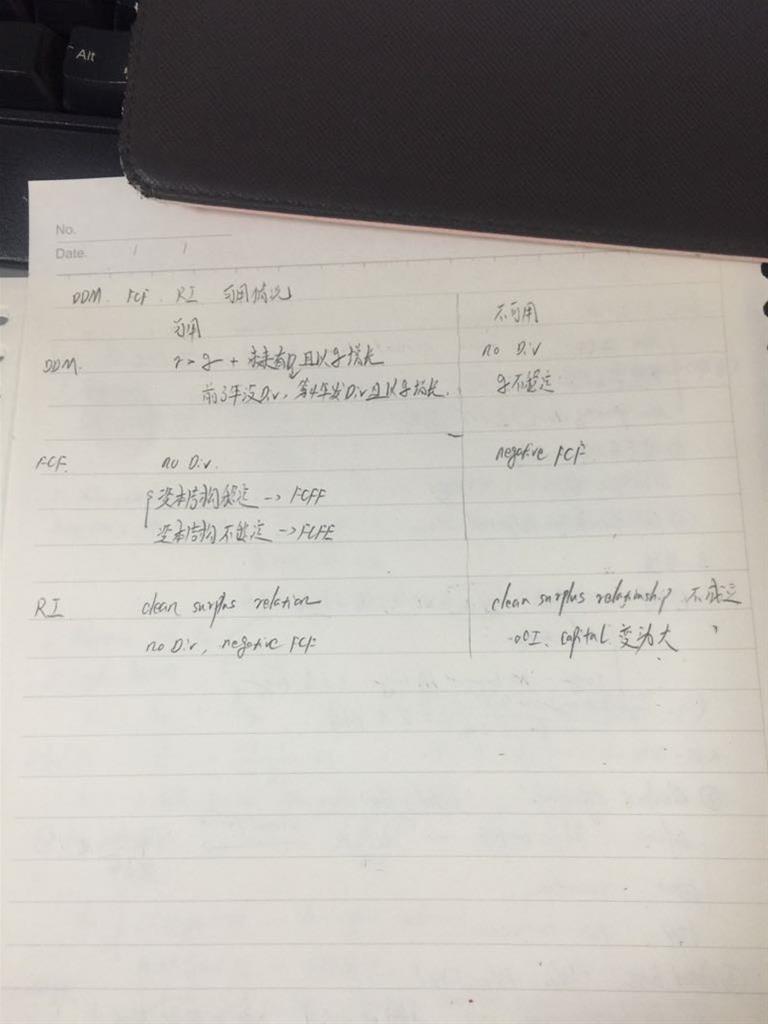 Alt
No.
Date. / /
DDM. FCF. RI 可用情况
可用 不可用
DDM. r>g + 未来有D且以g增长 no Div
前3年没Div, 第4年发Div且以g增长. g不稳定
FCF. no Div. negative FCF
资本结构稳定 → FCFF
资本结构不稳定 → FCFE
RI clean surplus relation clean surplus relationship 不成立
no Div, negative FCF OCI、capital 变动大